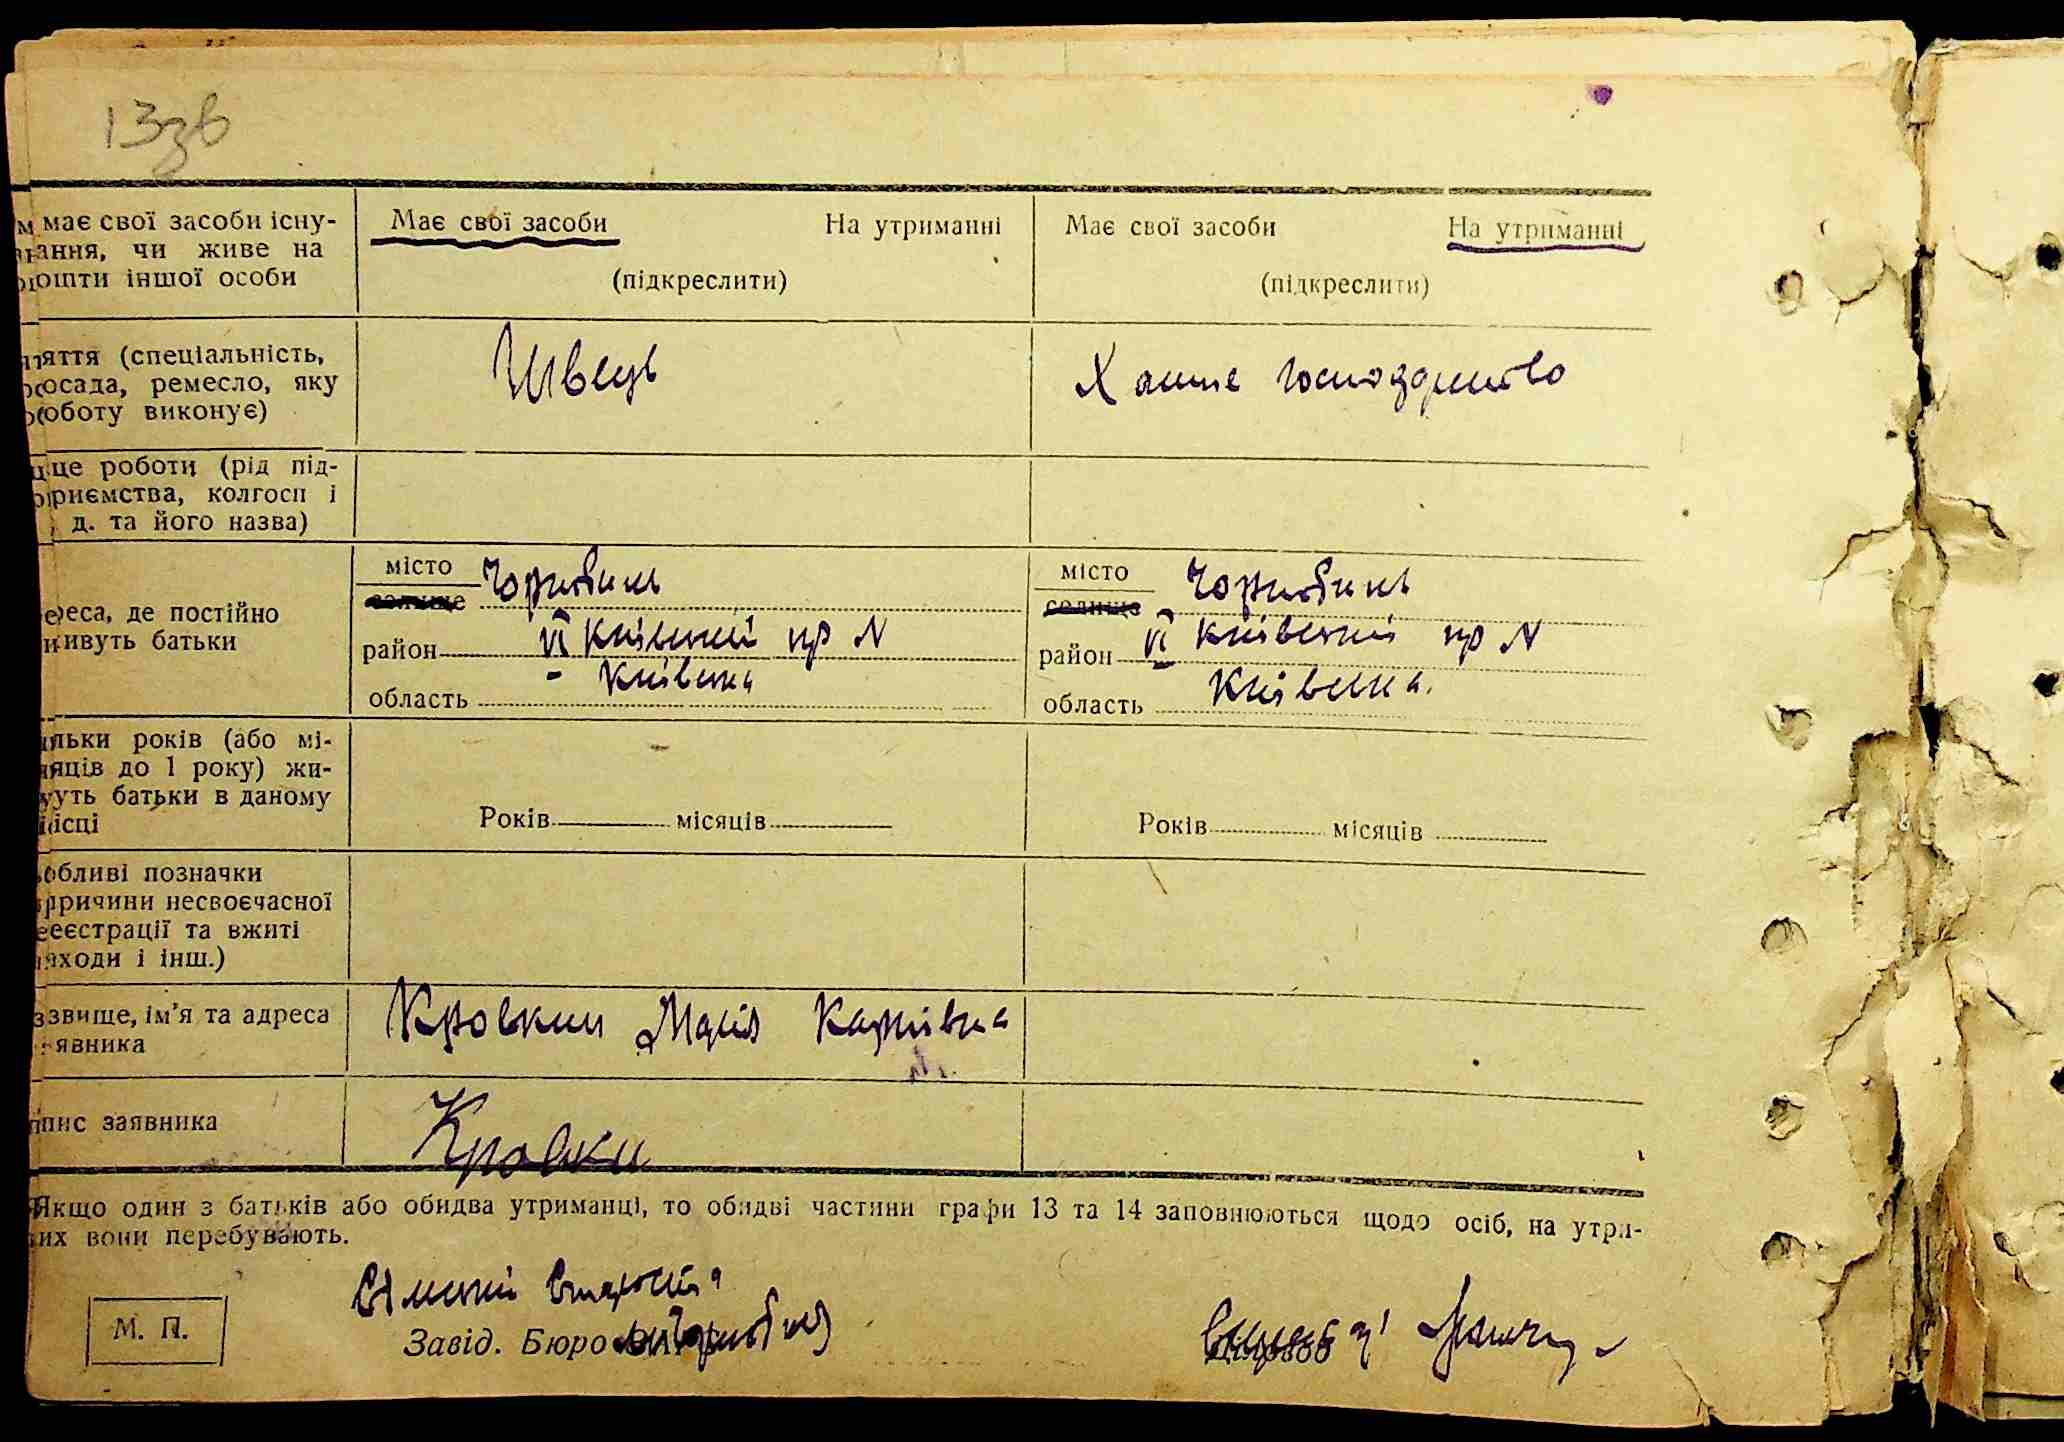 13зв
м має свої засоби існу-
вання, чи живе на
кошти іншої особи
Має свої засоби На утриманні
(підкреслити)
Має свої засоби На утриманні
(підкреслити)
няття (спеціальність,
посада, ремесло, яку
роботу виконує)
Швець
Хатнє господарство
це роботи (рід під-
приємства, колгосп і
д. та його назва)
реса, де постійно
живуть батьки
місто Чорнобиль
селище
район VI Київський пр N
область Київська
місто Чорнобиль
селище
район VI Київський пр N
область Київська
ільки років (або мі-
яців до 1 року) жи-
уть батьки в даному
місці
Років місяців
Років місяців
обливі позначки
причини несвоєчасної
реєстрації та вжиті
заходи і інш.)
звище, ім'я та адреса
явника
Марія Карпівна
пис заявника
Якщо один з батьків або обидва утриманці, то обидві частини графи 13 та 14 заповнюються щодо осіб, на утри-
их вони перебувають.
М. П.
Завід. Бюро